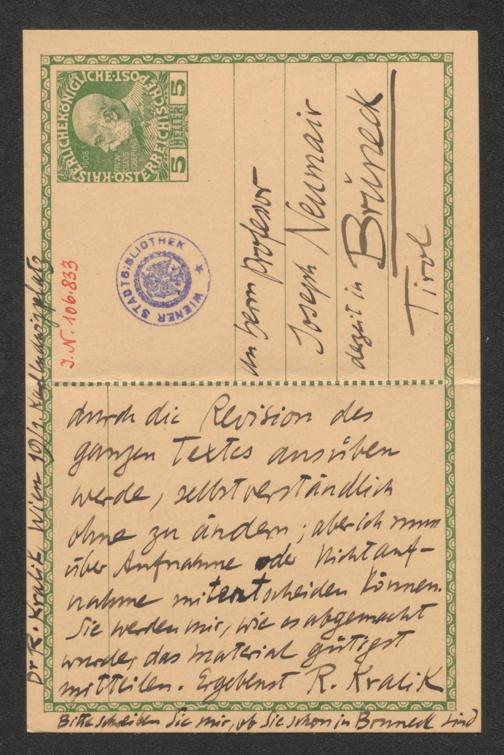 KAISERLICHE KÖNIGLICHE ÖSTERREICHISCHE POST
1908
5 HELLER 5
J.N. 106.833
WIENER STADTBIBLIOTHEK
an herrn Professor
Joseph Neumair
dezeit in Bruneck
Tirol
Dr R. Kralik Wien 19/1
durch die Revision des
ganzen Textes ausüben
werde, selbstverständlich
ohne zu ändern; aber ich muss
über Aufnahme oder Nichtauf-
nahme mitentscheiden können.
Sie werden mir, wie es abgemacht
wurde, das Material gütigst
mitteilen. Ergebenst R. Kralik
Bitte Sie mir, ob Sie schon in Bruneck sind